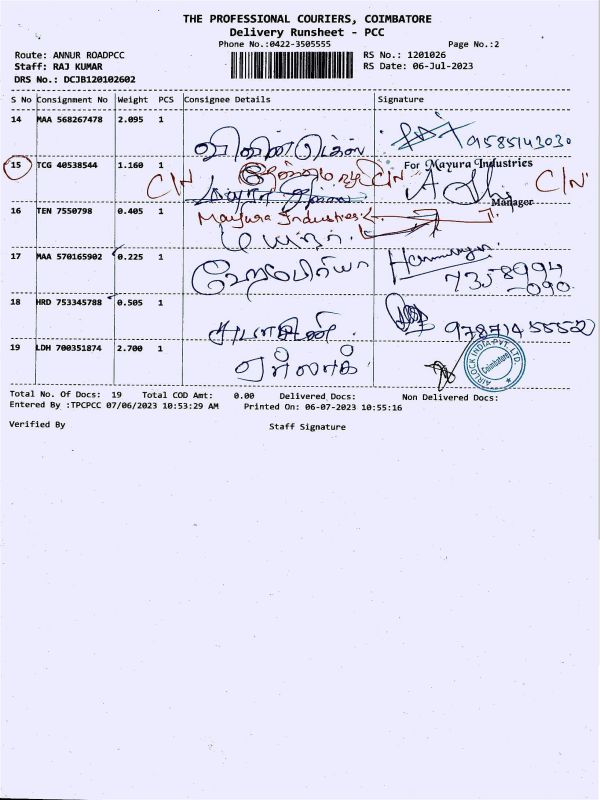 THE PROFESSIONAL COURIERS, COIMBATORE
Delivery Runsheet - PCC
Phone No.:0422-3505555
Page No.:2
Route: ANNUR ROADPCC
RS No.: 1201026
Staff: RAJ KUMAR
RS Date: 06-Jul-2023
DRS No.: DCJB120102602
S No Consignment No Weight PCS Consignee Details Signature
14 MAA 568267478 2.095 1
9585143030
15 TCG 40538544 1.160 1
For Mayura Industries
C/N C/N C/N
Manager
16 TEN 7550798 0.405 1
Mayura Industries
17 MAA 570165902 0.225 1
7358994
090
18 HRD 753345788 0.505 1
19 LDH 700351874 2.700 1
ஏர்லாக்
AIRLOCK INDIA PVT. LTD.
Coimbatore
Total No. Of Docs: 19 Total COD Amt: 0.00 Delivered Docs: Non Delivered Docs:
Entered By :TPCPCC 07/06/2023 10:53:29 AM Printed On: 06-07-2023 10:55:16
Verified By Staff Signature